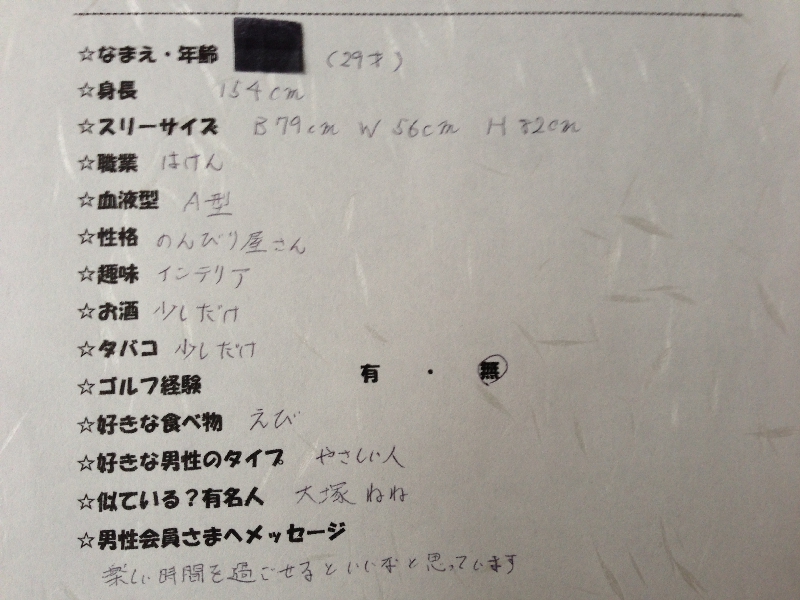 ☆なまえ・年齢 (29才)
☆身長 154cm
☆スリーサイズ B79cm W56cm H82cm
☆職業 はけん
☆血液型 A型
☆性格 のんびり屋さん
☆趣味 インテリア
☆お酒 少しだけ
☆タバコ 少しだけ
☆ゴルフ経験 有・無
☆好きな食べ物 えび
☆好きな男性のタイプ やさしい人
☆似ている?有名人 大塚ねね
☆男性会員さまへメッセージ
楽しい時間を過ごせるといいなと思っています